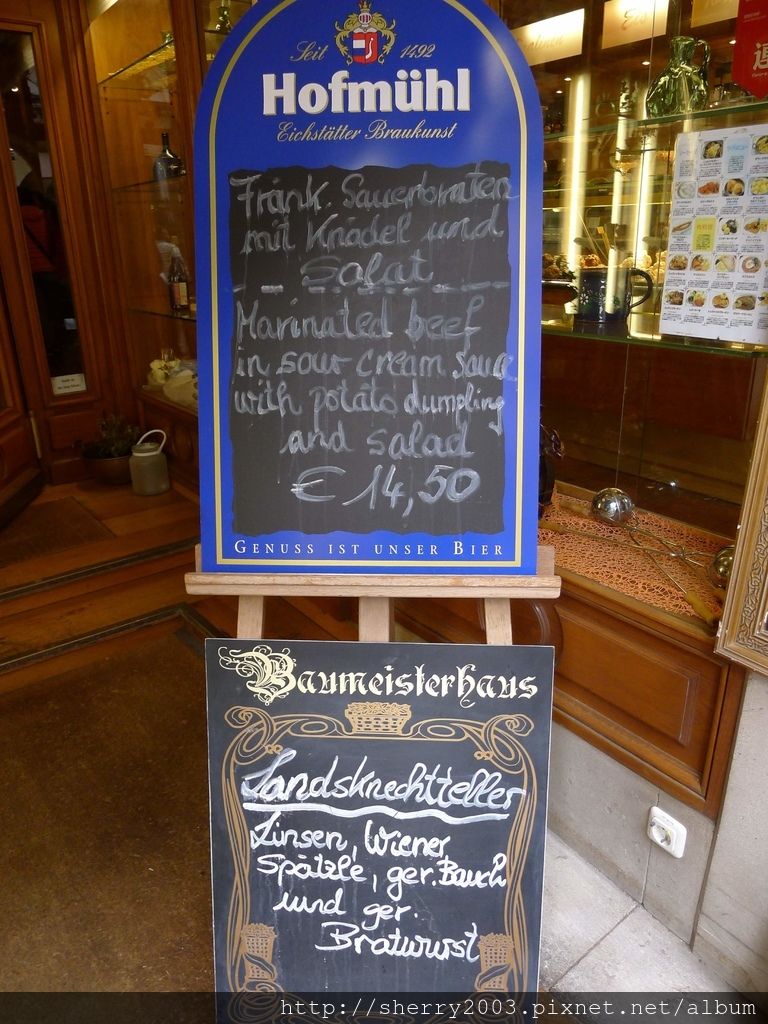 Seit 1492
Hofmühl
Eichstätter Braukunst
Fränk. Sauerbraten
mit Knödel und
Salat
Marinated beef
in sour cream sauce
with potato dumpling
and salad
€ 14,50
GENUSS IST UNSER BIER
Baumeisterhaus
Landsknechtteller
Linsen, Wiener
Spätzle, ger. Bauch
und ger.
Bratwurst
http://sherry2003.pixnet.net/album